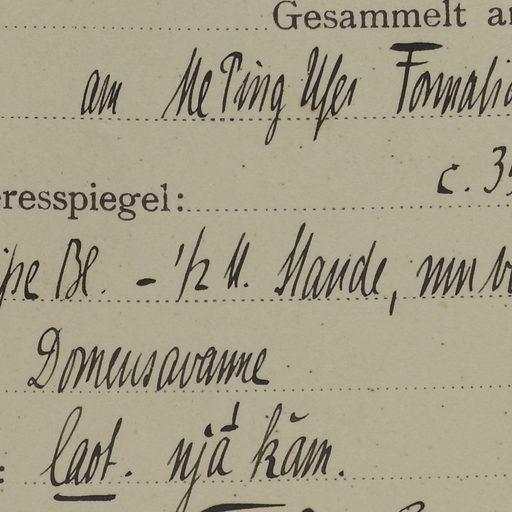 Gesammelt an
am Me Ping Ufer Formatio
c. 35
eresspiegel:
Bl. - 1/2 M. Staude, nun
Dornensavanne
: laot. njá kăm.